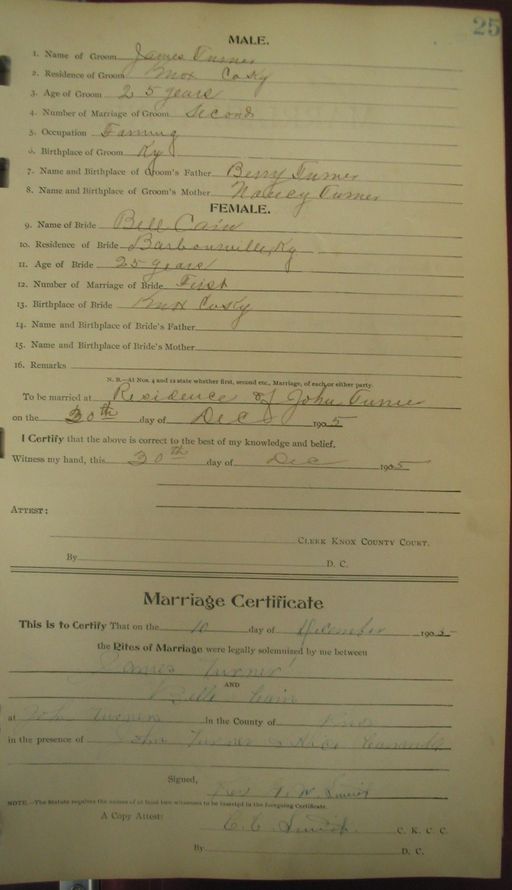 25
MALE.
1. Name of Groom James Turner
2. Residence of Groom Knox Co Ky
3. Age of Groom 25 years
4. Number of Marriage of Groom Second
5. Occupation Farming
6. Birthplace of Groom Ky
7. Name and Birthplace of Groom's Father Berry Turner
8. Name and Birthplace of Groom's Mother Nancy Turner
FEMALE.
9. Name of Bride Bell Cain
10. Residence of Bride Barbourville, Ky
11. Age of Bride 25 years
12. Number of Marriage of Bride First
13. Birthplace of Bride Knox Co Ky
14. Name and Birthplace of Bride's Father
15. Name and Birthplace of Bride's Mother
16. Remarks
N. B.—At Nos. 4 and 12 state whether first, second etc., Marriage, of each or either party.
To be married at Residence of John Turner
on the 30th day of Dec 1905
I Certify that the above is correct to the best of my knowledge and belief.
Witness my hand, this 30th day of Dec 1905
ATTEST:
CLERK KNOX COUNTY COURT.
By D. C.
Marriage Certificate
This is to Certify That on the day of December 1905
the Rites of Marriage were legally solemnized by me between
James Turner
AND
Belle Cain
at John Turners in the County of Knox
in the presence of John Turner &
Signed,
Rev W.
NOTE.—The Statute requires the names of at least two witnesses to be inserted in the foregoing Certificate.
A Copy Attest: C. C. C. K. C. C.
By D. C.